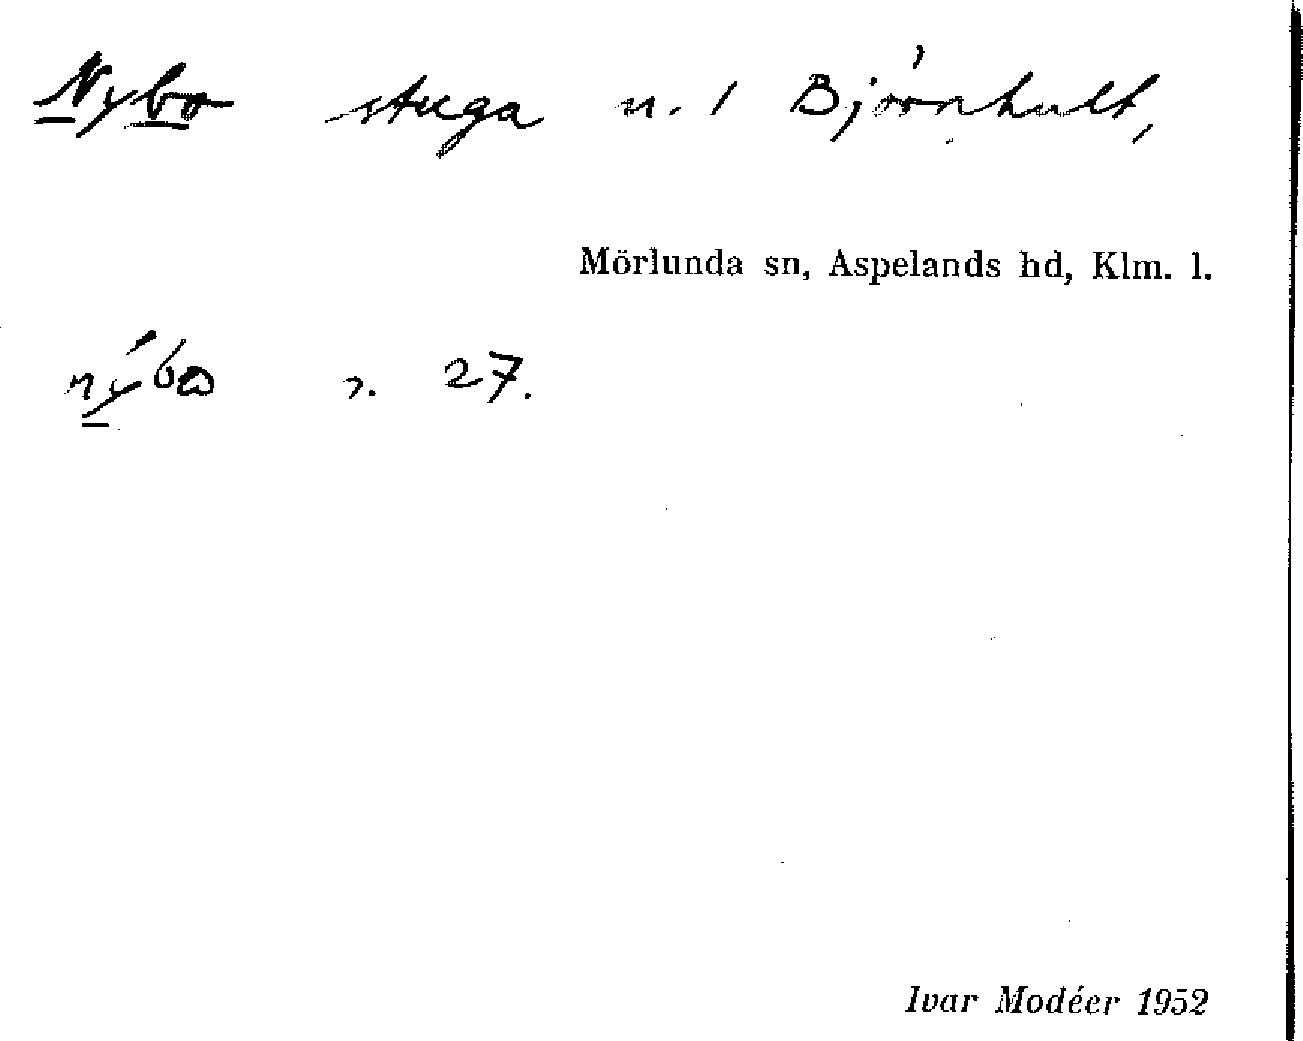 Nybo stuga n. 1 Björnhult,
Mörlunda sn, Aspelands hd, Klm. l.
nýbo 27.
Ivar Modéer 1952